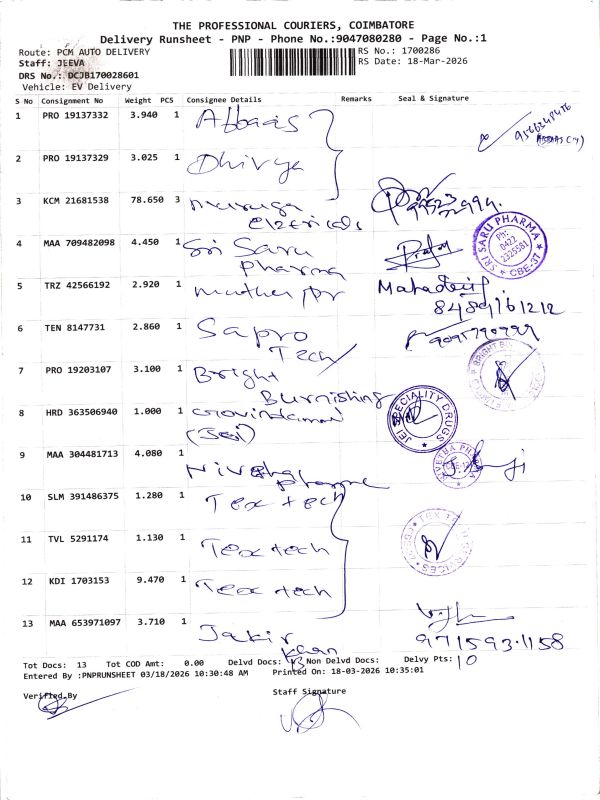 THE PROFESSIONAL COURIERS, COIMBATORE
Delivery Runsheet - PNP - Phone No.:9047080280 - Page No.:1
Route: PCM AUTO DELIVERY
Staff: JEEVA
DRS No.: DCJB170028601
Vehicle: EV Delivery
RS No.: 1700286
RS Date: 18-Mar-2026
S No Consignment No Weight PCS Consignee Details Remarks Seal & Signature
1 PRO 19137332 3.940 1 Abbaas
2 PRO 19137329 3.025 1 Dhivya
3 KCM 21681538 78.650 3 Muruga
Electricals
4 MAA 709482098 4.450 1 Sri Saru
Pharma
SRI SARU PHARMA
Ph:
0422
2325581
CBE-37
5 TRZ 42566192 2.920 1
8489161212
6 TEN 8147731 2.860 1 Sapro
Tech
7 PRO 19203107 3.100 1 Bright
Burnishing
8 HRD 363506940 1.000 1
(JEI)
JEI SPECIALITY DRUGS
9 MAA 304481713 4.080 1 Nivetha
Pharma
10 SLM 391486375 1.280 1 Tex tech
11 TVL 5291174 1.130 1 Tex tech
12 KDI 1703153 9.470 1 Tex tech
13 MAA 653971097 3.710 1 Jakir
Khan
Tot Docs: 13 Tot COD Amt: 0.00 Delvd Docs: 13 Non Delvd Docs: Delvy Pts: 10
Entered By :PNPRUNSHEET 03/18/2026 10:30:48 AM Printed On: 18-03-2026 10:35:01
Verified By
Staff Signature